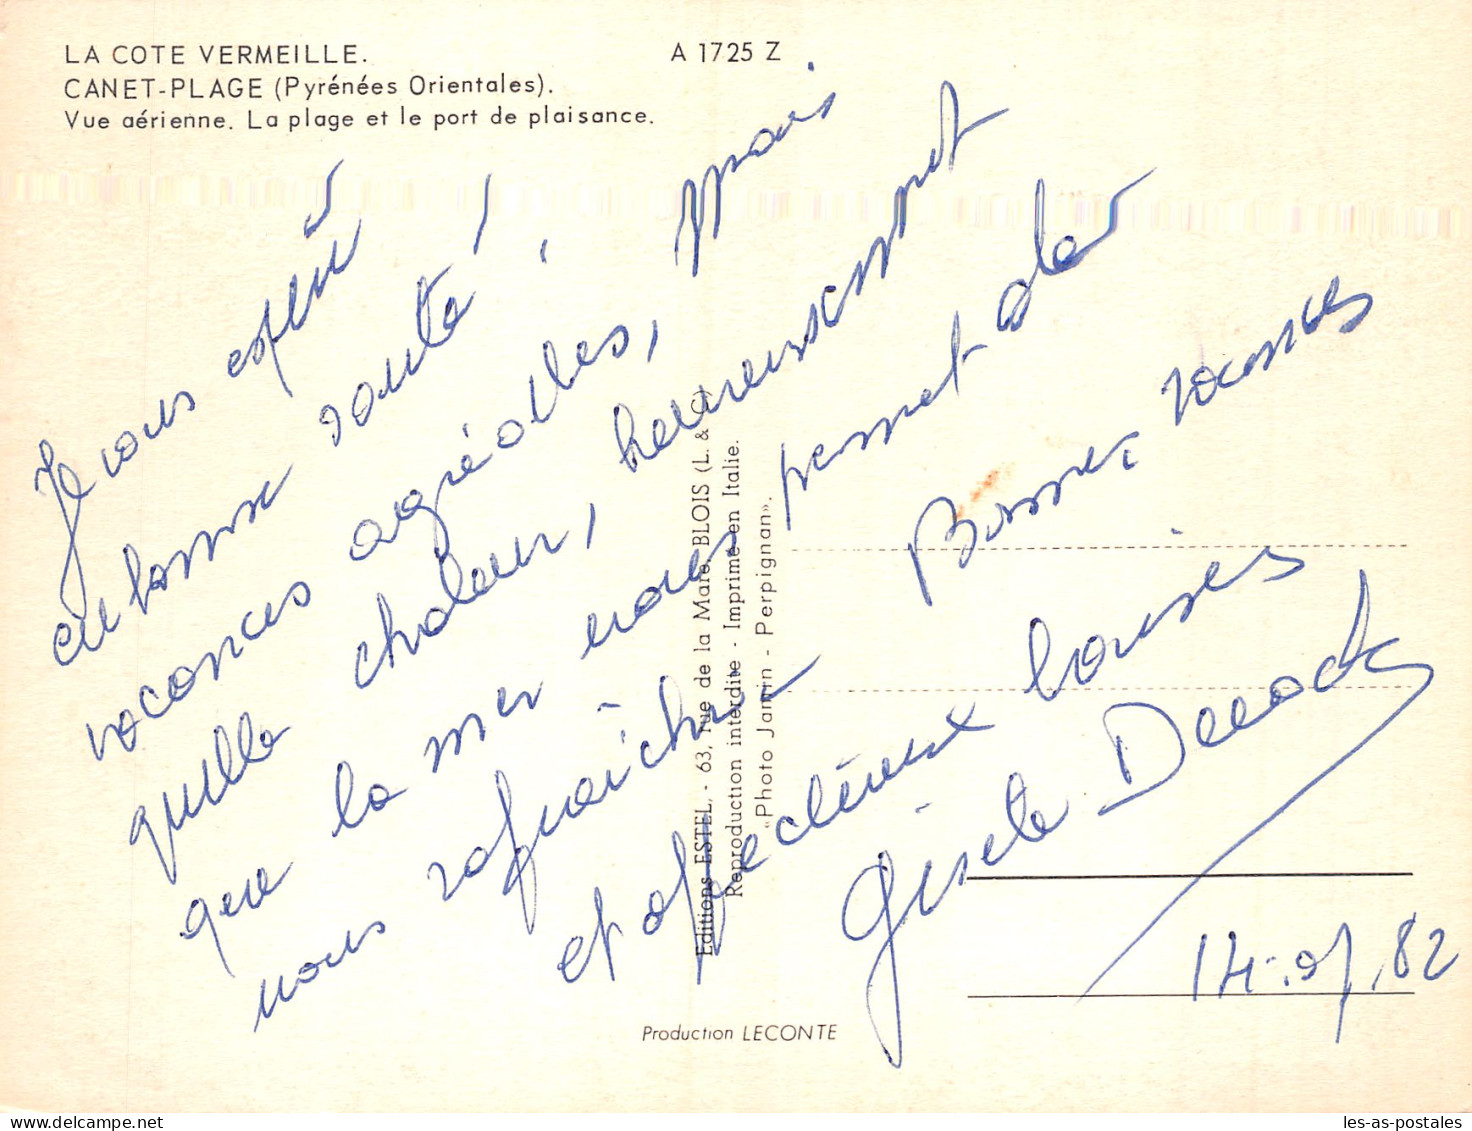 LA COTE VERMEILLE.
A 1725 Z
CANET-PLAGE (Pyrénées Orientales).
Vue aérienne. La plage et le port de plaisance.
Je vous espère
en bonne santé !
vacances agréables, mais
quelle chaleur, heureusement
que la mer nous permet de
nous rafraîchir Bonnes vacances
et affectueux baisers
Gisèle
14.07.82
Editions ESTEL, - 63, rue de la Mare, BLOIS (L. & C.)
Reproduction interdite - Imprimé en Italie.
«Photo Jamin - Perpignan».
Production LECONTE
les-as-postales